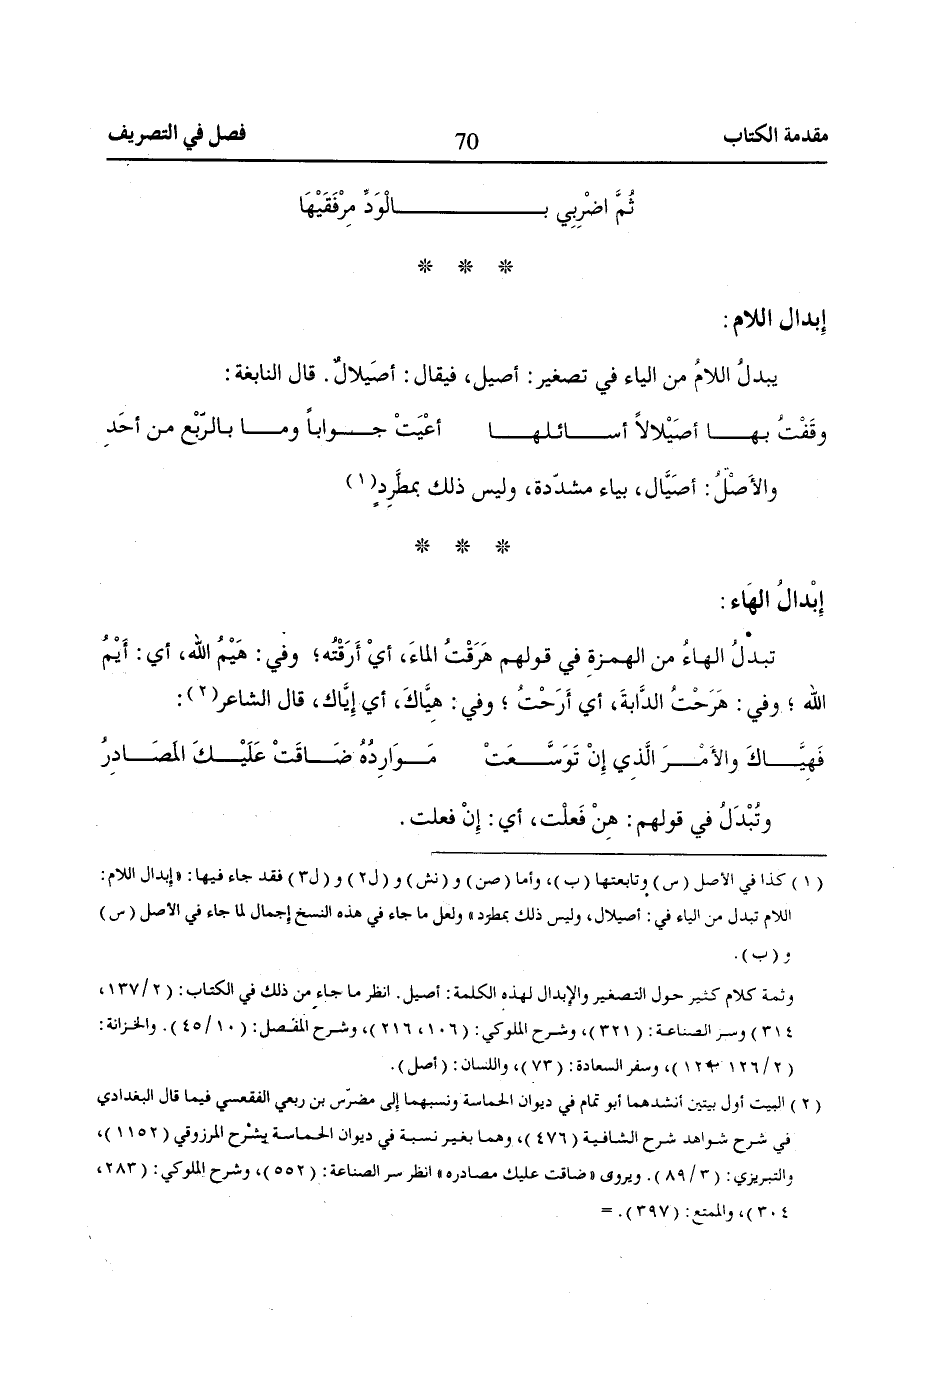 مقدمة الكتاب 70 فصل في التصريف
ثُمَّ اضْرِبِي بــالْوَدِّ مِرْفَقَيْهَا
* * *
إبدال اللام:
يبدلُ اللامُ من الياء في تصغير: أصيل، فيقال: أصَيلالٌ. قال النابغة:
وقَفْتُ بهــا أصَيْلالاً أســائلهــا أعْيَتْ جــواباً ومــا بالرّبْع من أحَدِ
والأصْلُ: أصَيَّال، بياء مشدّدة، وليس ذلك بمطَّرِدٍ(١)
* * *
إبْدالُ الهَاء:
تبدلُ الهاءُ من الهمزةِ في قولهم هَرَقْتُ الماءَ، أيْ أرَقْتُه؛ وفي: هَيْمُ الله، أي: أَيْمُ
الله ؛ وفي: هَرَحْتُ الدَّابةَ، أي أرَحْتُ ؛ وفي: هيَّاكَ، أي إيَّاك، قال الشاعر(٢):
فَهِيَّــاكَ والأمْــرَ الَّذي إنْ تَوَسَّــعَتْ مَــوَارِدُهُ ضَــاقَتْ عَلَيْــكَ المَصَــادِرُ
وتُبْدَلُ في قولهم: هنْ فَعلْت، أي: إنْ فعلت.
(١) كذا في الأصل (س) وتابعتها (ب)، وأما (صن) و (نش) و (ل٢) و (ل٣) فقد جاء فيها: «إبدال اللام:
اللام تبدل من الياء في: أصيلال، وليس ذلك بمطرد» ولعل ما جاء في هذه النسخ إجمال لما جاء في الأصل (س)
و (ب).
وثمة كلام كثير حول التصغير والإبدال لهذه الكلمة: أصيل. انظر ما جاء من ذلك في الكتاب: (١٣٧/٢،
٣١٤) وسر الصناعة: (٣٢١)، وشرح الملوكي: (١٠٦، ٢١٦)، وشرح المفصل: (٤٥/١٠). والخزانة:
(١٢٦/٢)، وسفر السعادة: (٧٣)، واللسان: (أصل).
(٢) البيت أول بيتين أنشدهما أبو تمام في ديوان الحماسة ونسبهما إلى مضرّس بن ربعي الفقعسي فيما قال البغدادي
في شرح شواهد شرح الشافية (٤٧٦)، وهما بغير نسبة في ديوان الحماسة بشرح المرزوقي (١١٥٢)،
والتبريزي: (٨٩/٣). ويروى «ضاقت عليك مصادره» انظر سر الصناعة: (٥٥٢)، وشرح الملوكي: (٢٨٣،
٣٠٤)، والممتع: (٣٩٧). =